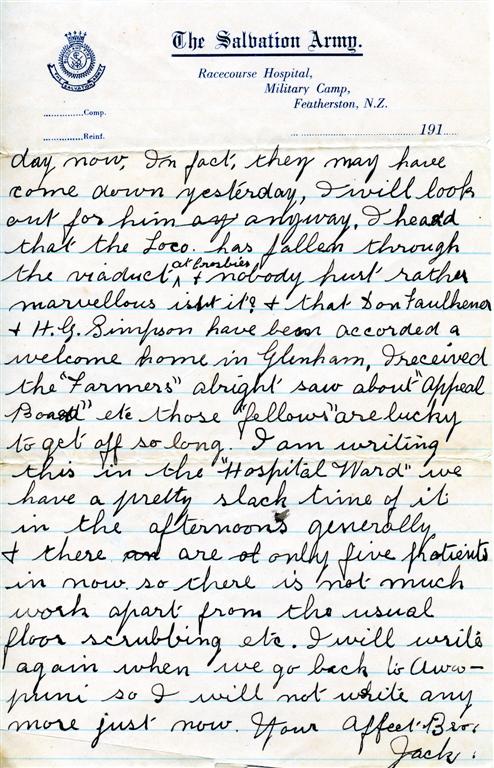 The Salvation Army.
Racecourse Hospital,
Military Camp,
Featherston, N.Z.
THE SALVATION ARMY
..............Comp.
..............Reinf.
191
day now, In fact, they may have
come down yesterday, I will look
out for him anyway. I heard
that the Loco. has fallen through
the viaduct at Crosbies & nobody hurt rather
marvellous isn't it? & that Don Faulkener
& H.G. Simpson have been accorded a
welcome home in Glenham, I received
the "Farmers" alright saw about "Appeal
Board" etc those "fellows" are lucky
to get off so long. I am writing
this in the "Hospital Ward" we
have a pretty slack time of it
in the afternoons generally
& there are only five patients
in now so there is not much
work apart from the usual
floor scrubbing etc. I will write
again when we go back to Awa-
puni so I will not write any
more just now. Your Affect. Bro.
Jack.